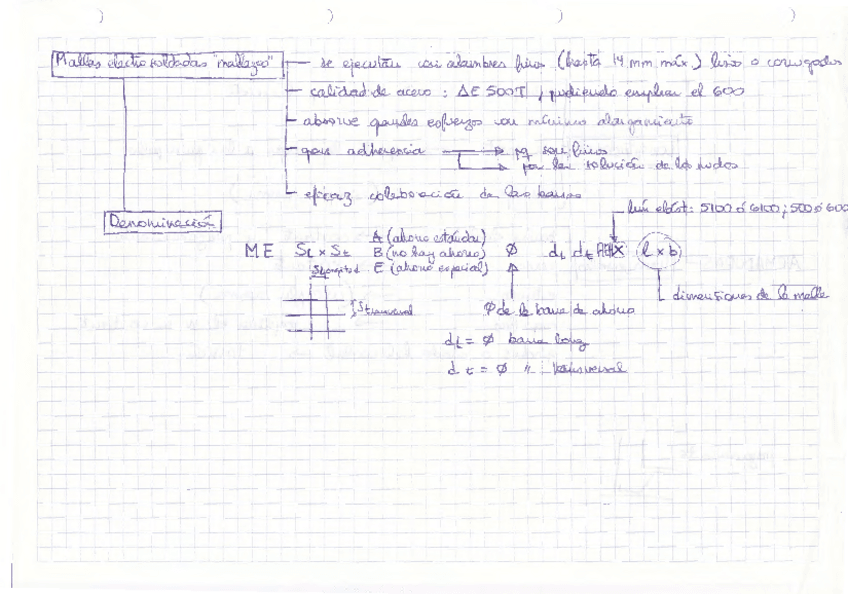 Mallas electrosoldadas "mallazos"
se ejecutan con alambres finos (hasta 14 mm máx.) lisos o corrugados
calidad de acero: AE 500T, pudiendo emplear el 600
absorve grandes esfuerzos con mínimo alargamiento
gran adherencia → pq son finos
→ por la solución de los nudos
eficaz colaboración de las barras
Denominación
lím elást: 5100 ó 6100; 500 ó 600
A (ahorro estándar)
ME SL x St B (no hay ahorro) Ø dL dt X l x b
SLongitud E (ahorro especial)
Stransversal
Ø de la barra de ahorro
dimensiones de la malla
dL = Ø barra long
dt = Ø " transversal